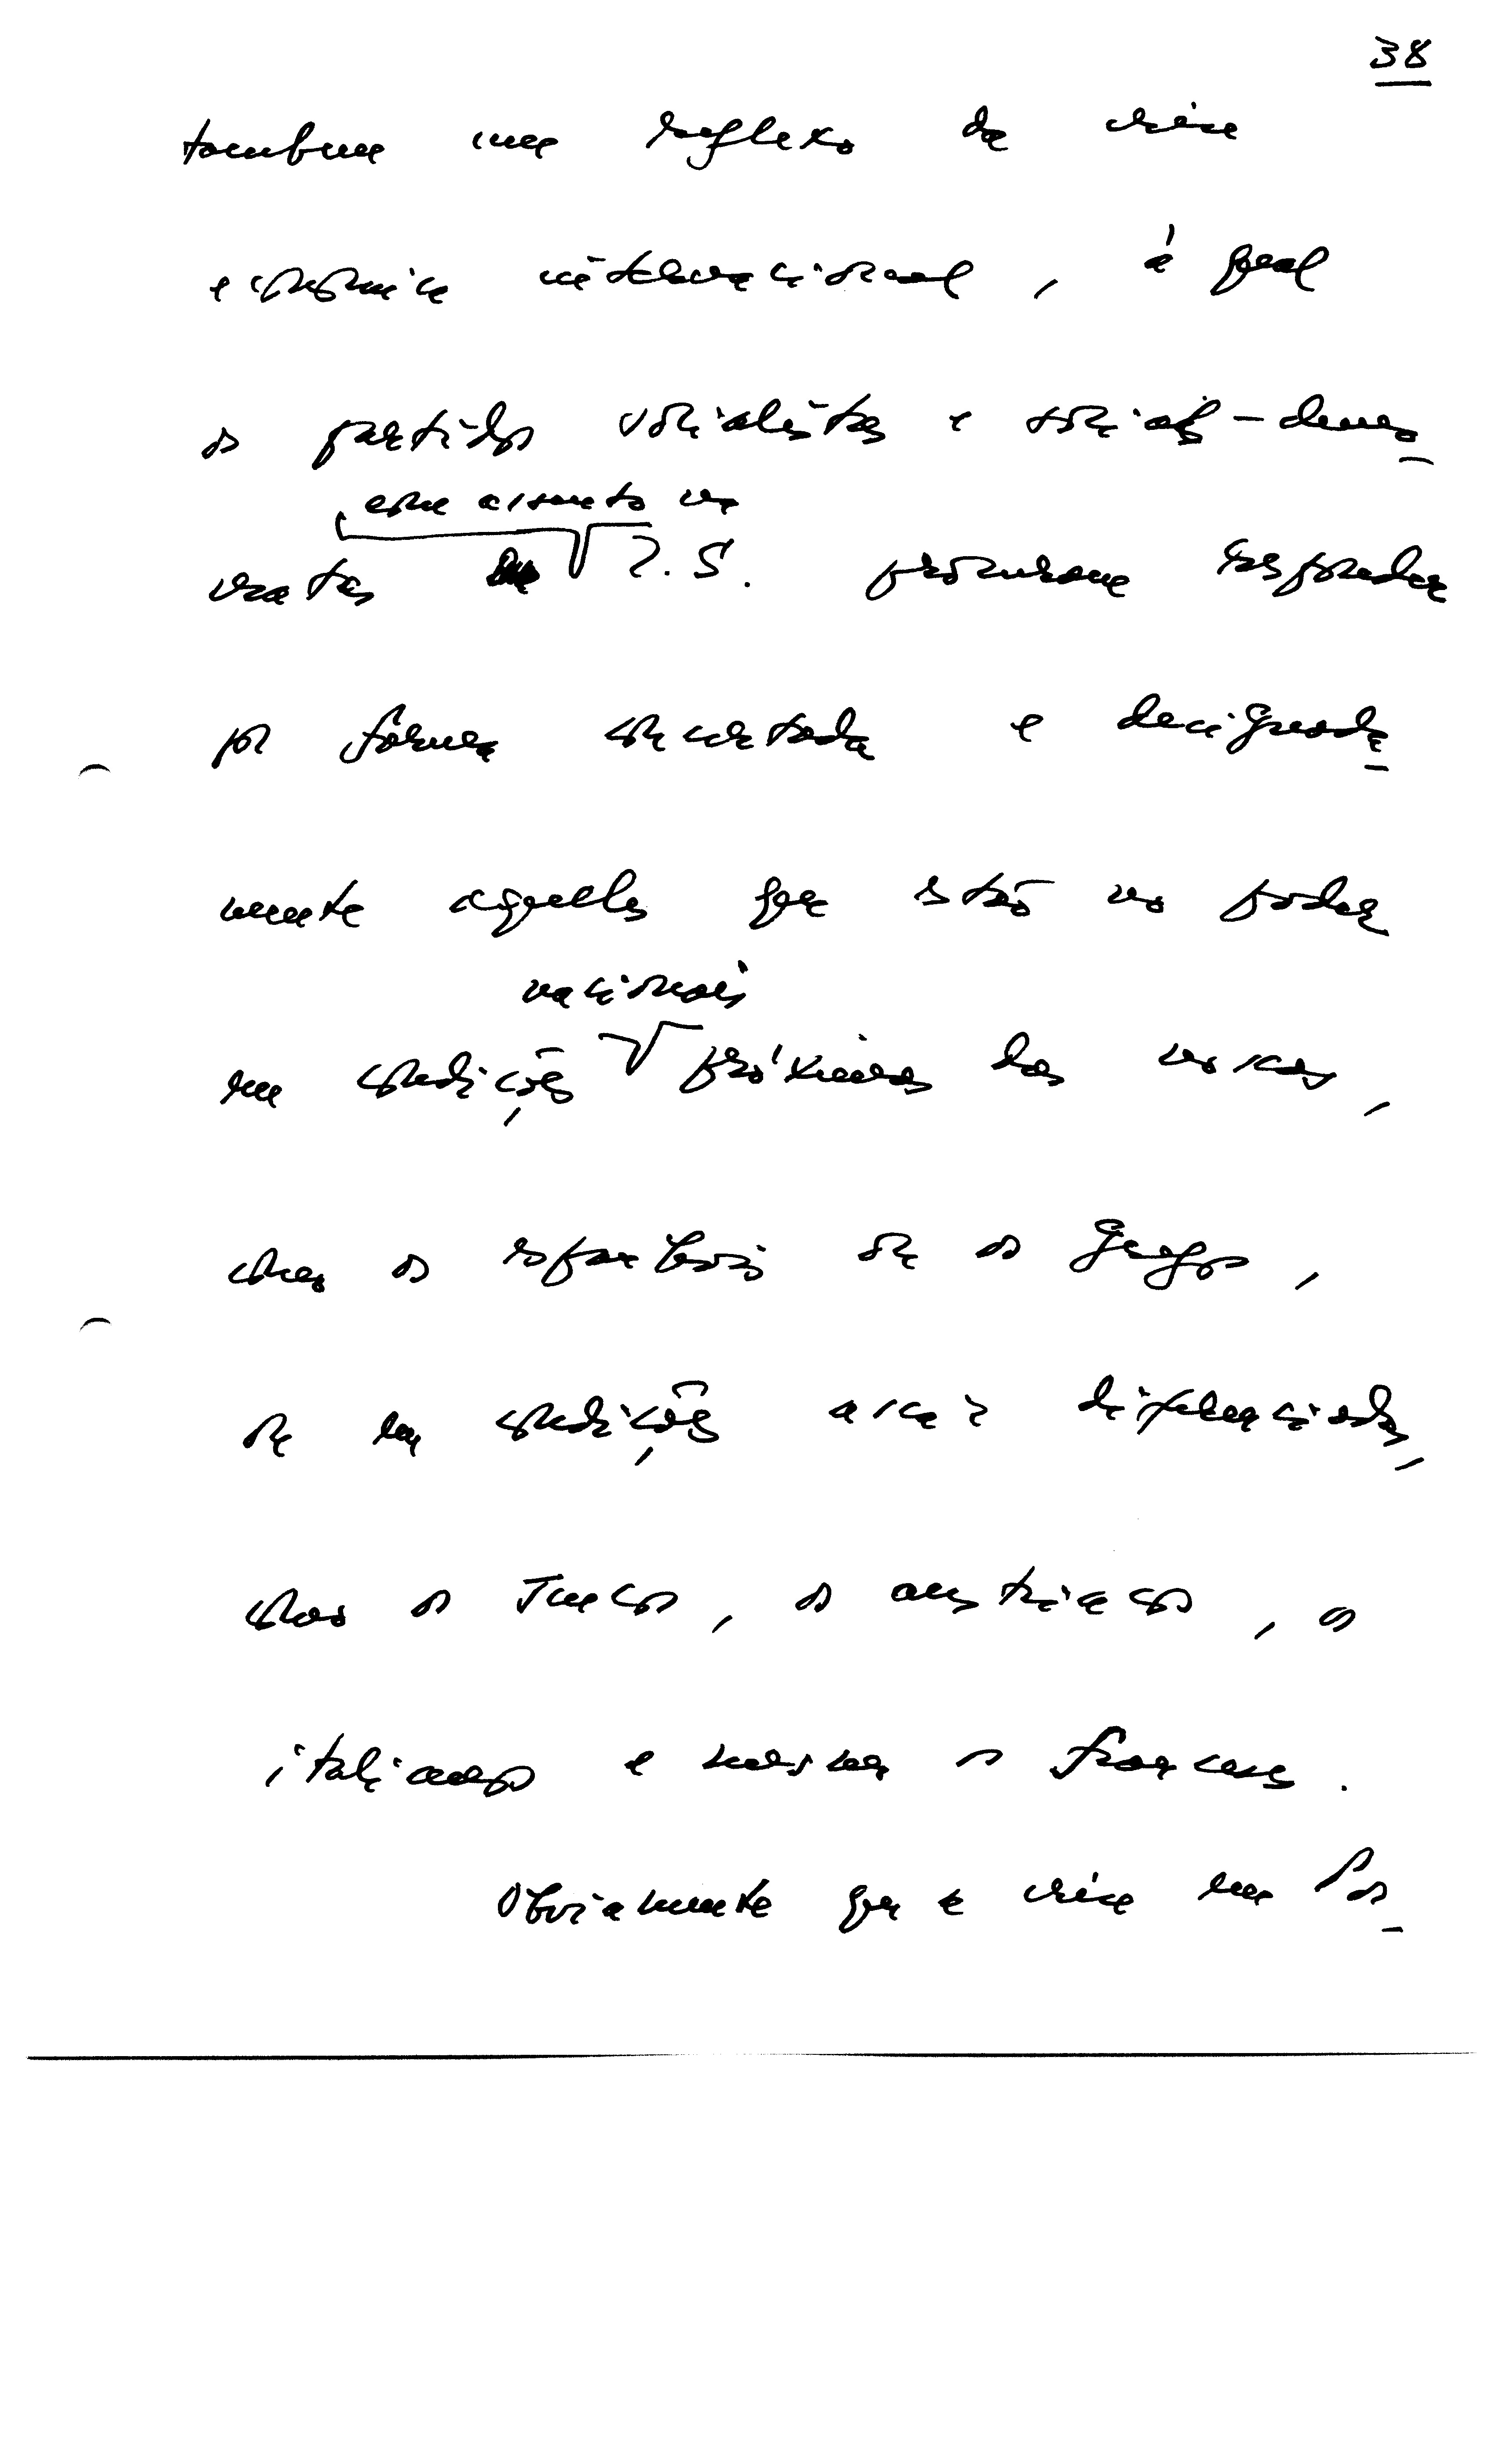 38
também um reflexo da crise
económica internacional, à qual
os partidos socialistas e sociais-demo_
com assento na
cratas I.S. procuram responder
por forma concertada e designada_
mente aqueles que estão no poder
nacionais
em condições próximas das nossas,
como os espanhóis ou os gregos,
ou em condições mais diferenciadas,
como os suecos, os austríacos, os
italianos e mesmo os franceses.
Obviamente que a crise em Por_